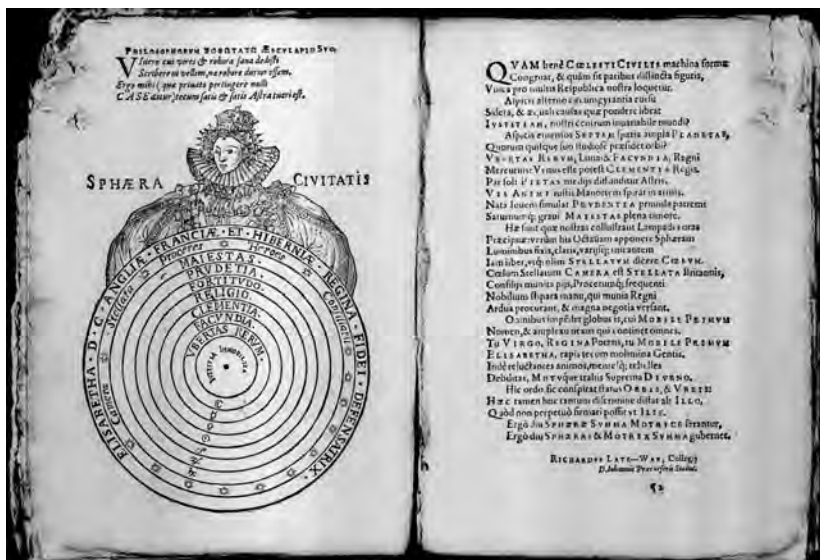 PHILOSOPHORVM ÆSCVLAPIO SVO,
cui vires & robora sana dedisti
Scribere si vellem, durior essem.
Ergo mihi (quæ privato pertingere nulli
CASE datur) tecum satis & satis Astra tueri est.
SPHÆRA CIVITATIS
ELISABETHA · D · G · ANGLIÆ · FRANCIÆ · ET · HIBERNIÆ · REGINA · FIDEI · DEFENSATRIX ·
Camera Stellata Proceres Heroes Consiliarii
MAIESTAS.
PRVDETIA
FORTITVDO.
RELIGIO
CLEMENTIA
FACVNDIA.
VBERTAS RERVM.
IVSTITIA IMMOBILIS
QVAM benè COELESTI CIVILIS machina formæ
Congruat, & quàm sit paribus distincta figuris,
Vnica pro multis Respublica nostra loquetur.
Aspicis alterno circumgyrantia cursu
Sidera, & causas quæ pondere librat
IVSTITIAM, nostri centrum immobile mundi?
Aspicis emensos SEPTEM spatia ampla PLANETAS,
Quorum quisque suo studiosè præsidet orbi?
VBERTAS RERVM, Luna: & FACVNDIA, Regni
Mercurius: Venus esse potest CLEMENTIA Regis.
Pro soli PIETAS medijs diffunditur Astris.
VIS ANIMI Mavortem spirat in armis.
Nata Iovem simulat PRVDENTIA patrem
Saturnumq; gravi MAIESTAS plena timore.
Hæ sunt quæ nostras collustrant Lampades oras
Præcipuæ: verùm his Octavam apponere Sphæram
Luminibus fixis, claris, varijsq; micantem
Iam liber, olim STELLATVM dicere COELVM.
Coelum Stellatum CAMERA est STELLATA Britannis,
Consilijs munita pijs, Procerumq; frequenti
Nobilium stipata manu, qui munia Regni
Ardua procurant, & magna negotia versant.
Omnibus impendet globus is, cui MOBILE PRIMVM
Nomen, & amplexu qui continet omnes.
Tu VIRGO, REGINA Potens, tu MOBILE PRIMVM
ELISABETHA, rapis tecum molimina Gentis.
Indè reluctantes animos,
Debilitas, MOTVque trahis Suprema DIVRNO.
Hic ordo, sic conspirat status ORBIS, & VRBIS:
HÆC tamen hoc tantum discrimine distat ab ILLO,
Quòd non perpetuò firmari possit vt ILLE.
Ergò diu SPHÆRÆ SVMMA MOTRICE ferantur,
Ergò diu SPHÆRAS & MOTRIX SVMMA gubernet.
RICHARDVS LATE-WAR, Collegij
D. Iohannis Præcursoris Socius.